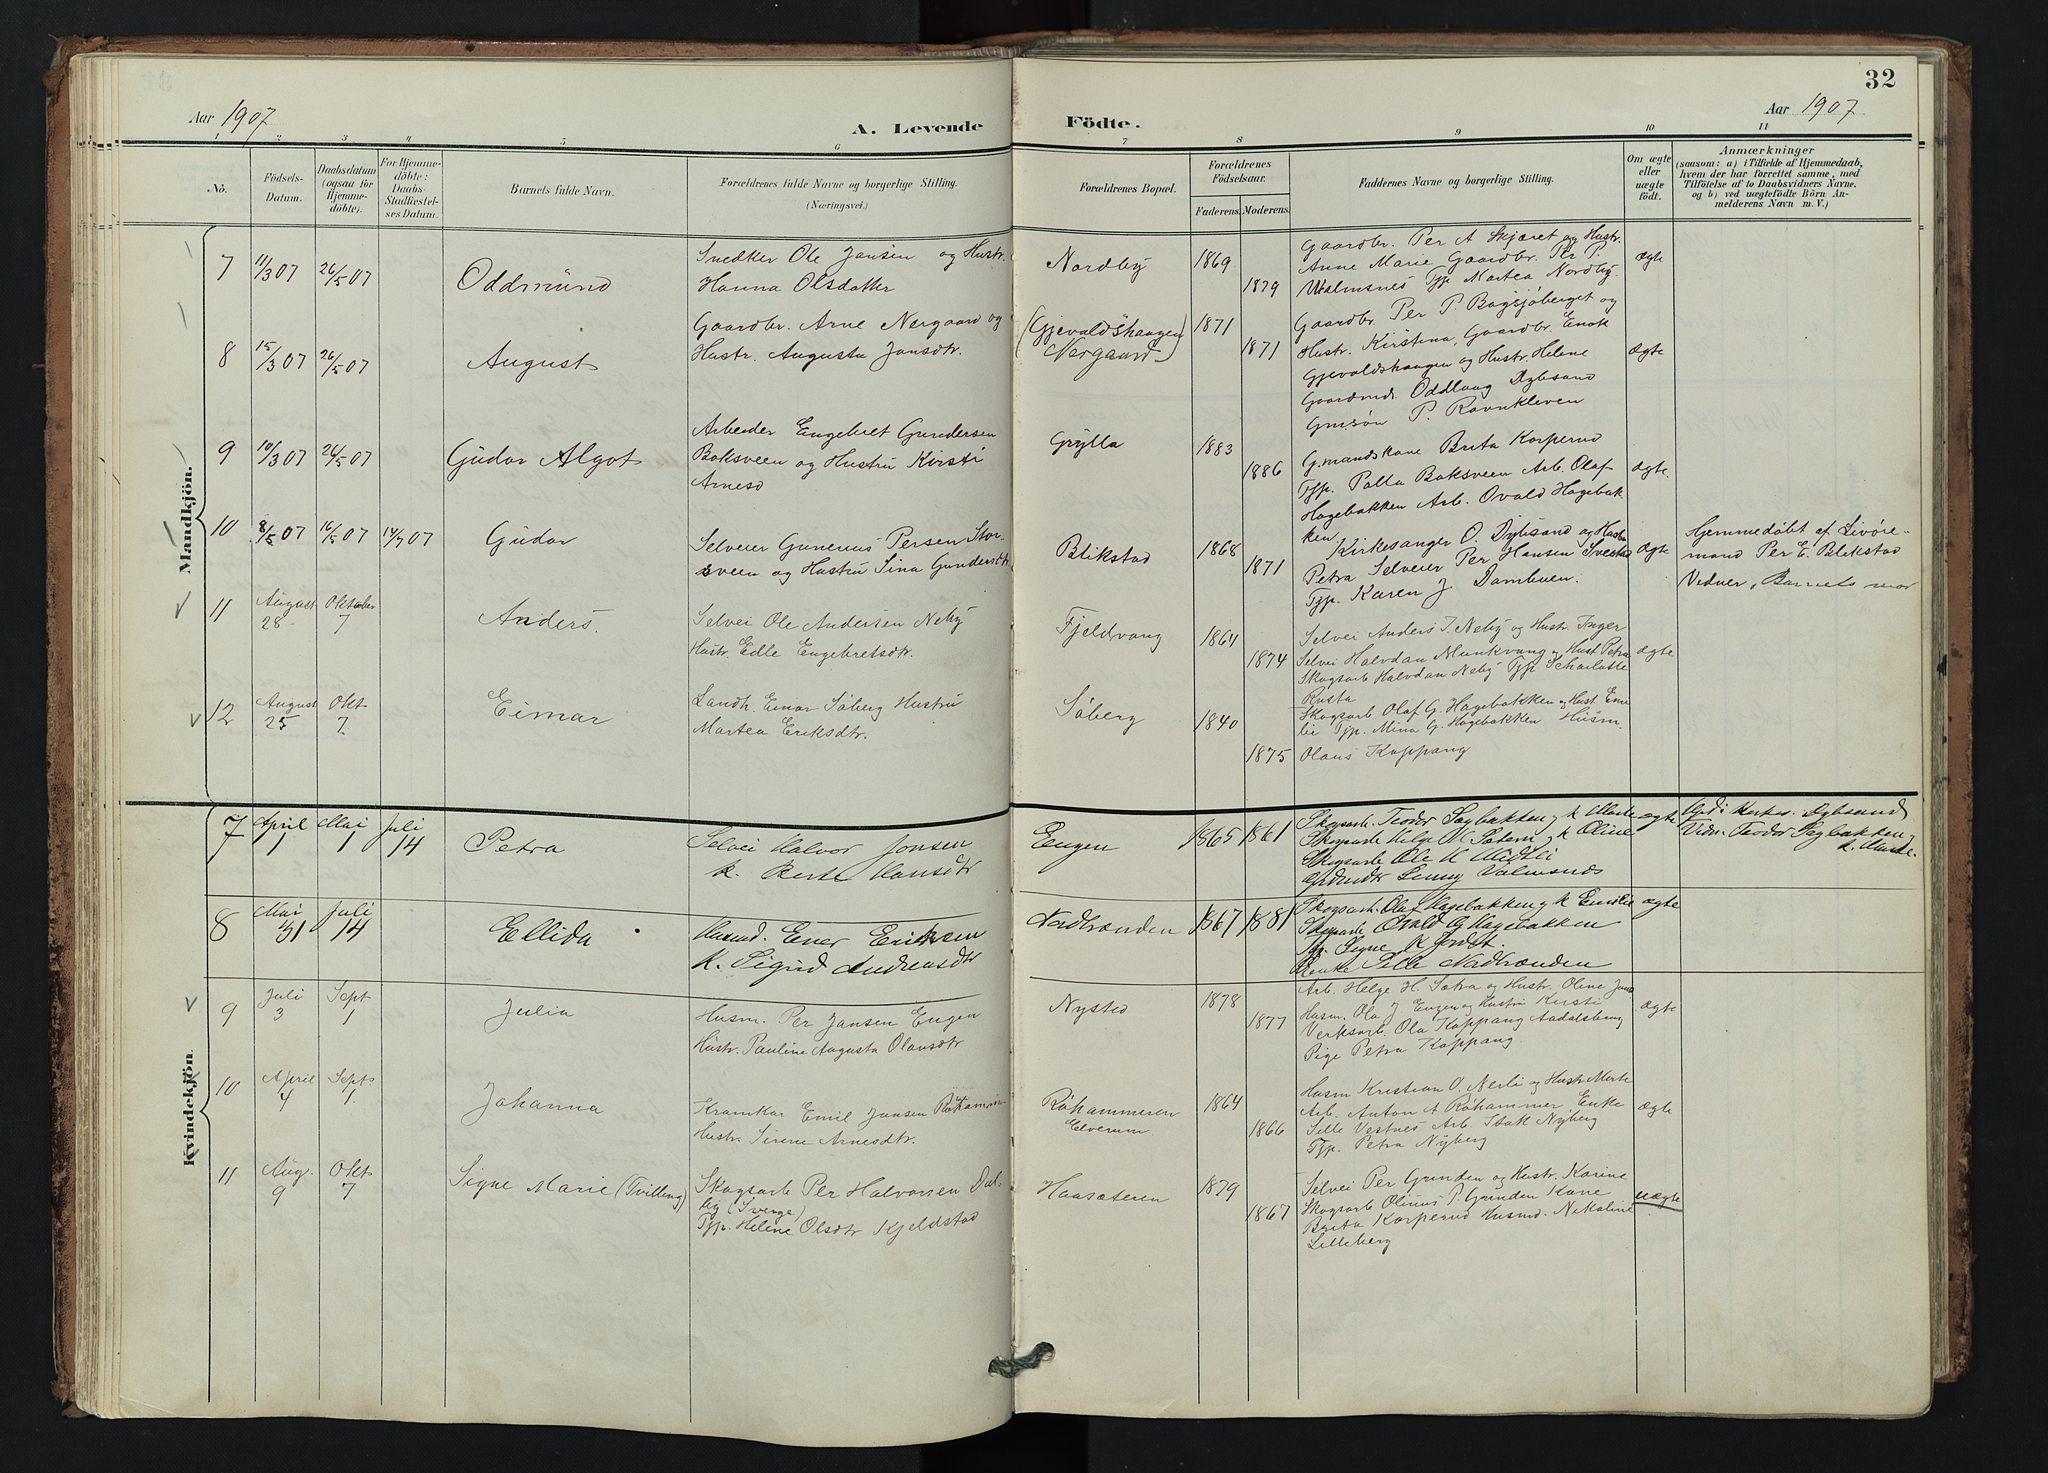 32
Aar 1907
A. Levende
Födte.
Aar 1907
1 2 3 4 5 6 7 8 9 10 11
No.
Födsels-
Datum.
Daabsdatum
(ogsaa for
Hjemme-
döbte).
For Hjemme-
döbte:
Daabs-
Stadfæstel-
ses Datum.
Barnets fulde Navn.
Forældrenes fulde Navne og borgerlige Stilling.
(Næringsvei.)
Forældrenes Bopæl.
Forældrenes
Födselsaar.
Faderens. Moderens.
Faddernes Navne og borgerlige Stilling.
Om ægte
eller
uægte
födt.
Anmærkninger
(saasom: a) i Tilfælde af Hjemmedaab,
hvem der har forrettet samme, med
Tilföielse af to Daabsvidners Navne.
og b) ved uægtefödte Börn An-
melderens Navn m. V.)
Mandkjön.
7 11/3 07 26/5 07 Oddmund
Snedker Ole Jansen og Hustr.
Hanna Olsdatter
Nordby 1869 1879
Gaardbr. Per A Skjæret og Hustr.
Anne Marie Gaardbr. Per P.
Ulvalmsnes Tjp. Martea Nordby
ægte
8 15/3 07 26/5 07 August
Gaardbr. Arne Nergaard og
Hustr. Augusta Jansdtr.
(Gjevaldshaugen
Nergaard) 1871 1871
Gaardbr. Per P. Bagsjöberget og
Hustr. Kirstina, Gaardbr. Enok
Gjevaldshaugen og Hustr. Helene
Gaardmd. Oddlaug Dybsand
Gmsön P. Ravnkleven
ægte
9 10/3 07 26/5 07 Gudor Algot
Arbeider Engebret Gundersen
Baksveen og Hustru Kirsti
Arnesd
Grylla 1883 1886
G.mandskone Brita Korperud
Tjp. Palla Baksveen Arb. Olaf
Hagebakken Arb. Ovald Hagebak-
ken
ægte.
10 8/5 07 16/5 07 14/7 07 Gudor
Selveier Gunerius Persen Stor-
sveen og Hustru Sina Gundersdtr
Blikstad 1868 1871
Kirkesanger O. Dybsand og Hustru
Petra Selveier Per Hansen Svestad
Tjp. Karen J Damhuen.
ægte
Hjemmedöbt af Livöre-
mand Per E. Blekstad
Vidner, Barnets mor
11 August 28 Oktober 7 Anders.
Selvei Ole Andersen Neby
Hustr. Edle Engebretsdtr.
Fjeldvang 1864 1874
Selvei Anders T. Neby og Hustr. Inger
Selvei Halvdan Munkvang og Hust Petra
Skogsarb Halvdan Neby Tjp Scharlotte
Rusta
ægte
12 August 25 Okt 7. Eimar
Landh. Einar Söberg Hustru
Martea Eriksdtr.
Söberg 1840 1875
Skogsarb Olaf G. Hagebakken og Hust Emi-
lie Tjp. Mina G. Hagebakken Husm.
Olaus Koppang
Kvindekjön.
7 April 1 Mai 1 Juli 14 Petra
Selvei Halvor Jonsen
k. Berte Hansdtr
Eugen 1865 1861
Skogsarb. Teodor Sagbakken og k Marte
Skogsarb Helge H. Sætern og k Oline
Skogsarb Ole H Midtli
Grdmdtr Jenny Valmsnes
ægte
Vidn. Teodor Sagbakken og
k. Marte.
8 Mai 31 Juli 14 Ellida
Husmd. Ener Eriksen
k. Sigrid Andreasdtr
Nordstrænden 1867 1881
Skogsarb. Olaf Hagebakken og k Emilie
Skogsarb Ovald G Hagebakken
Tjp. Signe K Jordet.
Enke Sille Nordstrænden
ægte
9 Juli 3 Sept 1 Julia
Husm. Per Jansen Eugen
Hustr. Pauline Augusta Olausdtr
Nysted 1878 1877
Arb. Helge H. Sætra og Hustr. Oline Jans
Husm. Ola J Eugen og Hustru Kirsti
Verksarb. Ola Koppang Aadalsbrug
Pige Petra Koppang
ægte
10 April 4 Septr 1. Johanna
Kramkar Emil Jansen Röhammer
Hustr. Sirene Arnesdtr.
Röhammeren
Elverum 1864 1866
Husm Kristian O. Nerli og Hustr. Marte
Arb. Anton A Röhammer Enke
Sille Vestnes Arb. Isak Nyberg
Tjp. Petra Nyberg
ægte
11 Aug. 9 Okt 7 Signe Marie (Tvilling)
Skogsarb Per Halvorsen Dal-
by (Sverge)
Tjp. Helene Olsdtr Kjeldstad
Haasæteren 1879 1867
Selvei Per Grunden og Hustr. Karine
Skogsarb Olinus P. Grunden Kone
Brita Korperud Husmd. Nikoline
Lilleberg
uægte